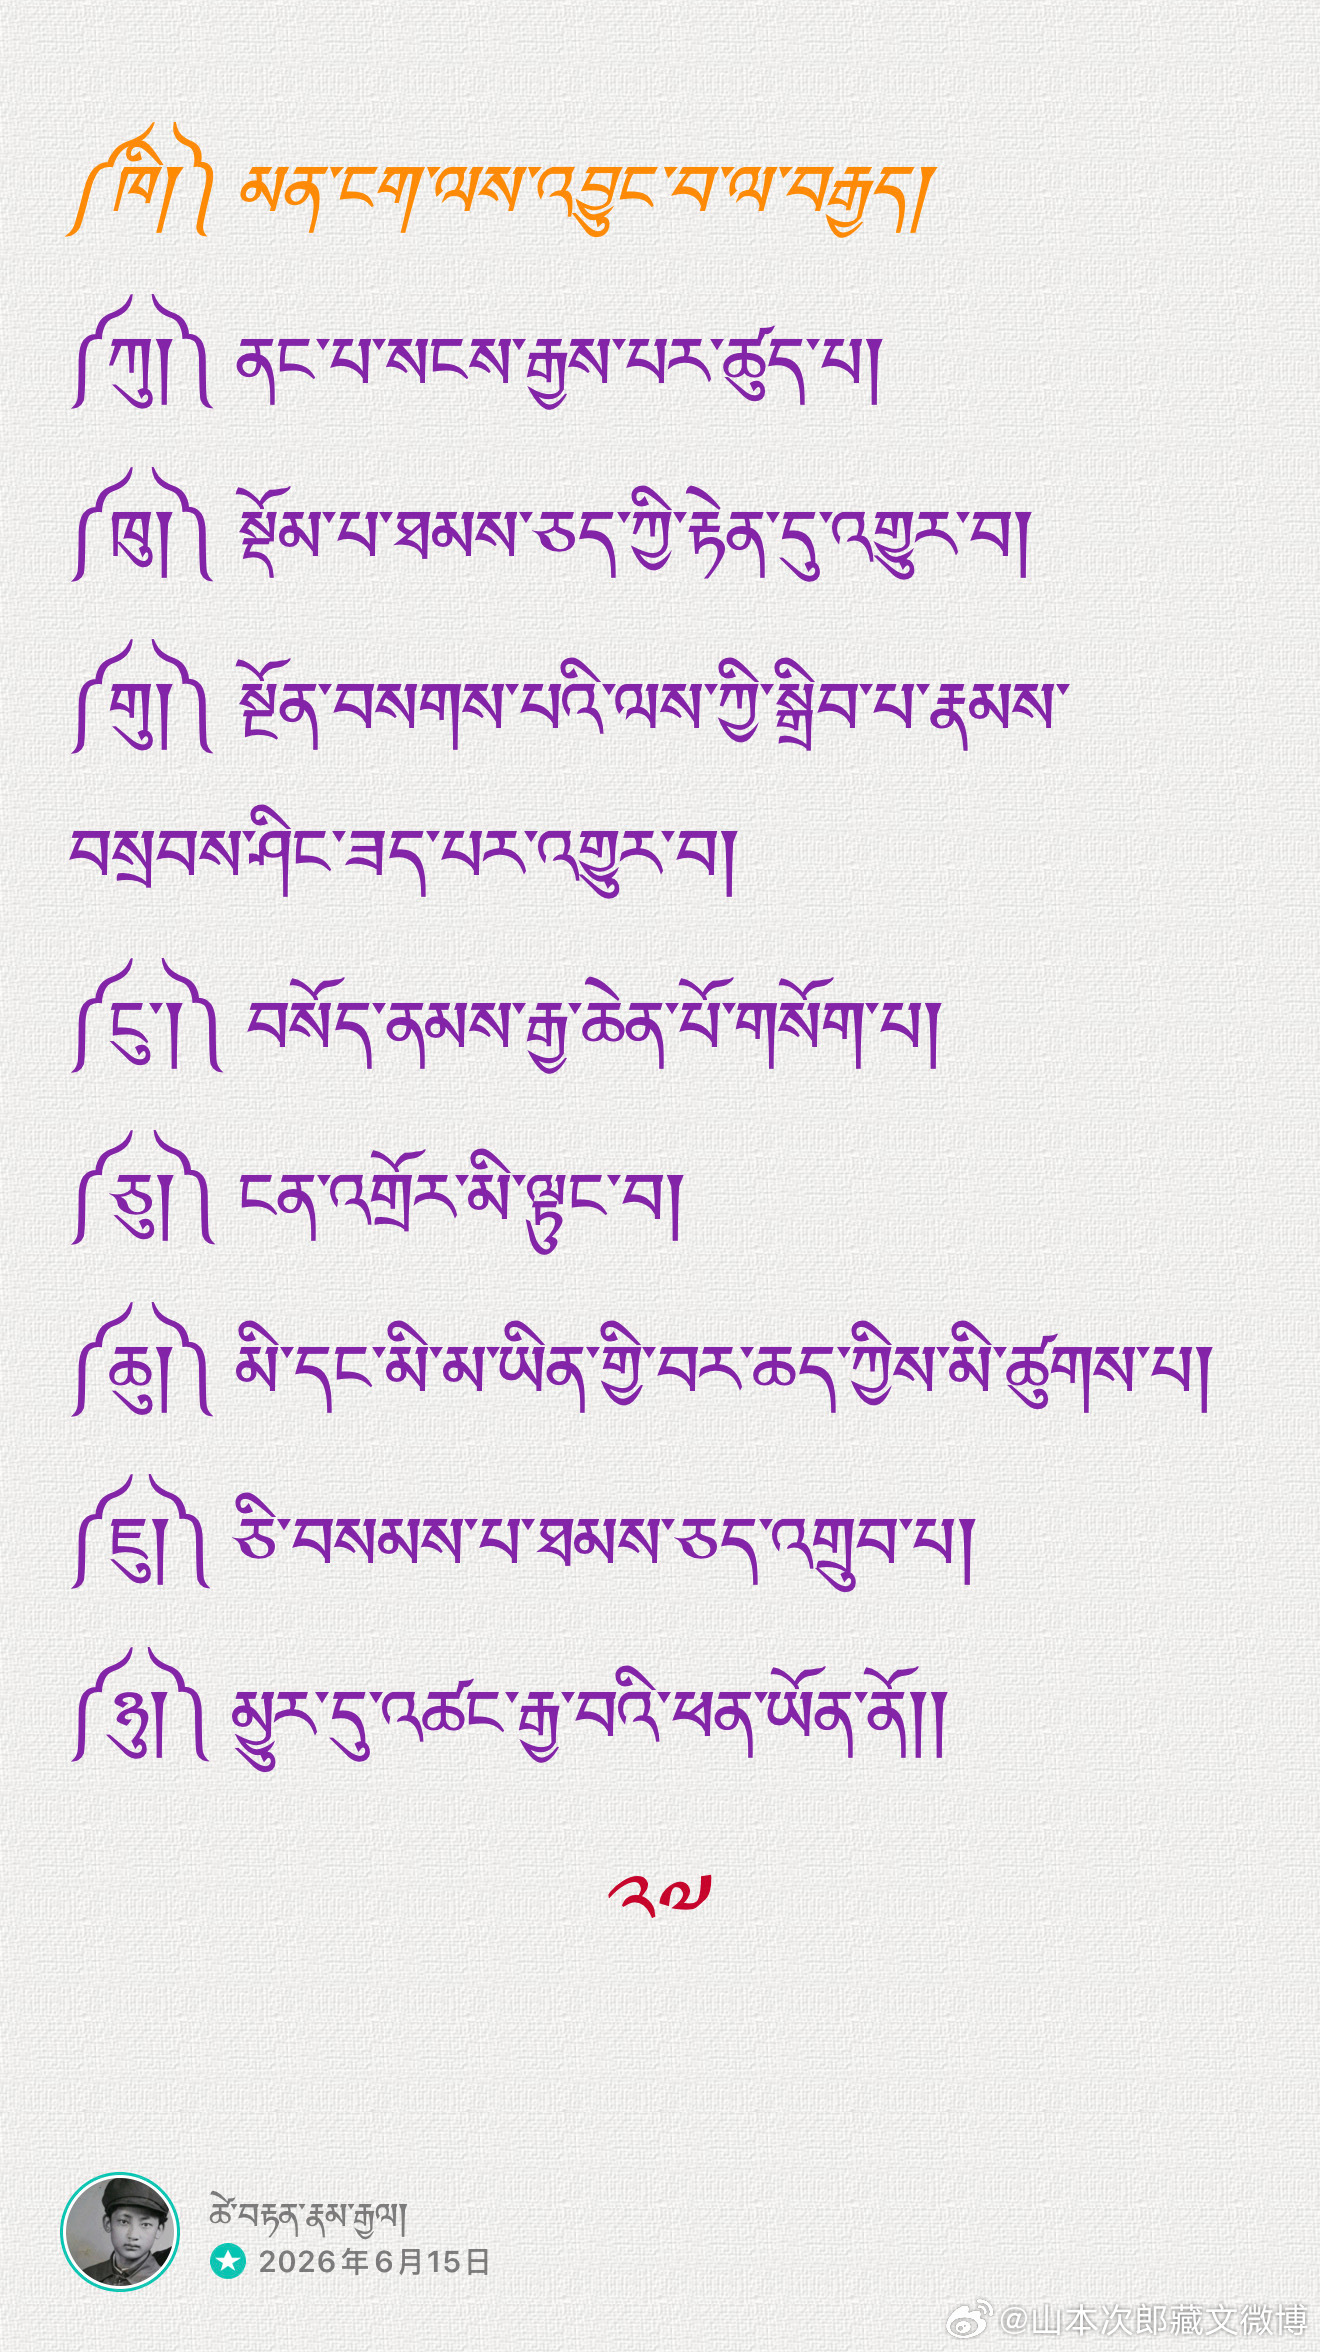 ༼ཁི།༽ མན་ངག་ལས་འབྱུང་བ་ལ་བརྒྱད།
༼ཀུ།༽ ནང་པ་སངས་རྒྱས་པར་ཚུད་པ།
༼ཁུ།༽ སྡོམ་པ་ཐམས་ཅད་ཀྱི་རྟེན་དུ་འགྱུར་བ།
༼གུ།༽ སྔོན་བསགས་པའི་ལས་ཀྱི་སྒྲིབ་པ་རྣམས་
བསྲབས་ཤིང་ཟད་པར་འགྱུར་བ།
༼ངུ་།༽ བསོད་ནམས་རྒྱ་ཆེན་པོ་གསོག་པ།
༼ཅུ།༽ ངན་འགྲོར་མི་ལྟུང་བ།
༼ཆུ།༽ མི་དང་མི་མ་ཡིན་གྱི་བར་ཆད་ཀྱིས་མི་ཚུགས་པ།
༼ཇུ།༽ ཅི་བསམས་པ་ཐམས་ཅད་འགྲུབ་པ།
༼ཉུ།༽ མྱུར་དུ་འཚང་རྒྱ་བའི་ཕན་ཡོན་ནོ།།
༢༧
ཚེ་བརྟན་རྣམ་རྒྱལ།
2026年6月15日
@山本次郎藏文微博